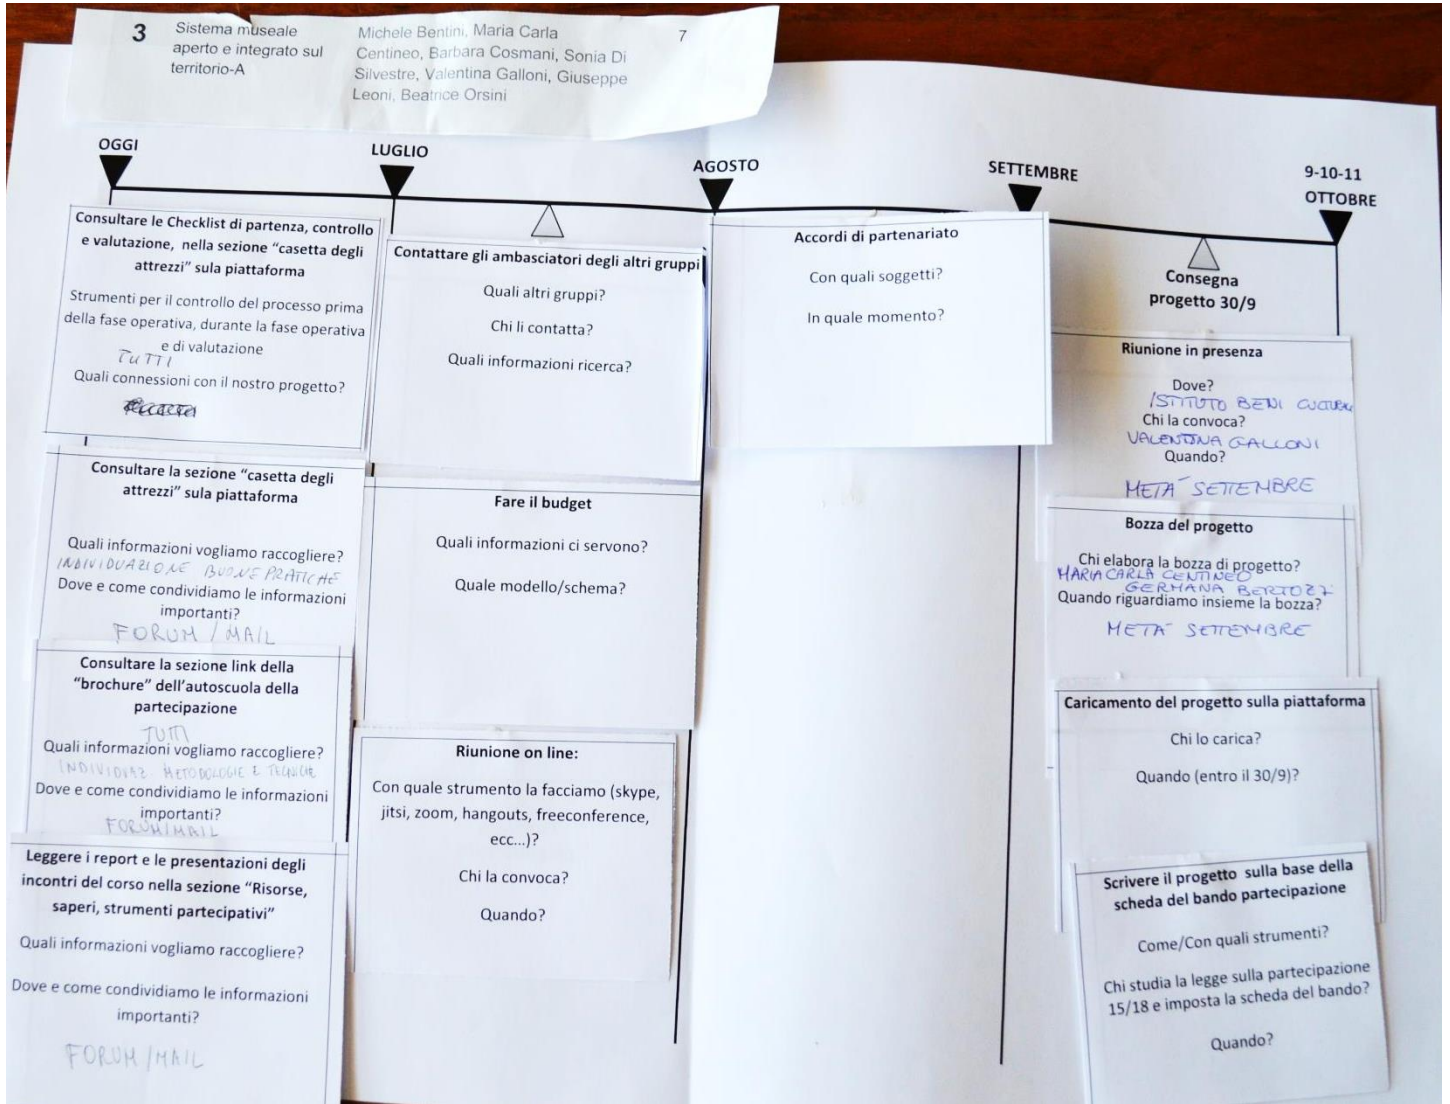 3
Sistema museale
aperto e integrato sul
territorio-A
Michele Bentini, Maria Carla
Centineo, Barbara Cosmani, Sonia Di
Silvestre, Valentina Galloni, Giuseppe
Leoni, Beatrice Orsini
7
OGGI
LUGLIO
AGOSTO
SETTEMBRE
9-10-11
OTTOBRE
Consultare le Checklist di partenza, controllo
e valutazione, nella sezione “casetta degli
attrezzi” sula piattaforma
Strumenti per il controllo del processo prima
della fase operativa, durante la fase operativa
e di valutazione
TUTTI
Quali connessioni con il nostro progetto?
Consultare la sezione “casetta degli
attrezzi” sula piattaforma
Quali informazioni vogliamo raccogliere?
INDIVIDUAZIONE BUONE PRATICHE
Dove e come condividiamo le informazioni
importanti?
FORUM / MAIL
Consultare la sezione link della
“brochure” dell’autoscuola della
partecipazione
TUTTI
Quali informazioni vogliamo raccogliere?
INDIVIDUAZ. METODOLOGIE E TECNICHE
Dove e come condividiamo le informazioni
importanti?
FORUM/MAIL
Leggere i report e le presentazioni degli
incontri del corso nella sezione “Risorse,
saperi, strumenti partecipativi”
Quali informazioni vogliamo raccogliere?
Dove e come condividiamo le informazioni
importanti?
FORUM/MAIL
Contattare gli ambasciatori degli altri gruppi
Quali altri gruppi?
Chi li contatta?
Quali informazioni ricerca?
Fare il budget
Quali informazioni ci servono?
Quale modello/schema?
Riunione on line:
Con quale strumento la facciamo (skype,
jitsi, zoom, hangouts, freeconference,
ecc...)?
Chi la convoca?
Quando?
Accordi di partenariato
Con quali soggetti?
In quale momento?
Consegna
progetto 30/9
Riunione in presenza
Dove?
ISTITUTO BENI CULTURALI
Chi la convoca?
VALENTINA GALLONI
Quando?
METÀ SETTEMBRE
Bozza del progetto
Chi elabora la bozza di progetto?
MARIA CARLA CENTINEO
GERMANA BERTOZZI
Quando riguardiamo insieme la bozza?
METÀ SETTEMBRE
Caricamento del progetto sulla piattaforma
Chi lo carica?
Quando (entro il 30/9)?
Scrivere il progetto sulla base della
scheda del bando partecipazione
Come/Con quali strumenti?
Chi studia la legge sulla partecipazione
15/18 e imposta la scheda del bando?
Quando?